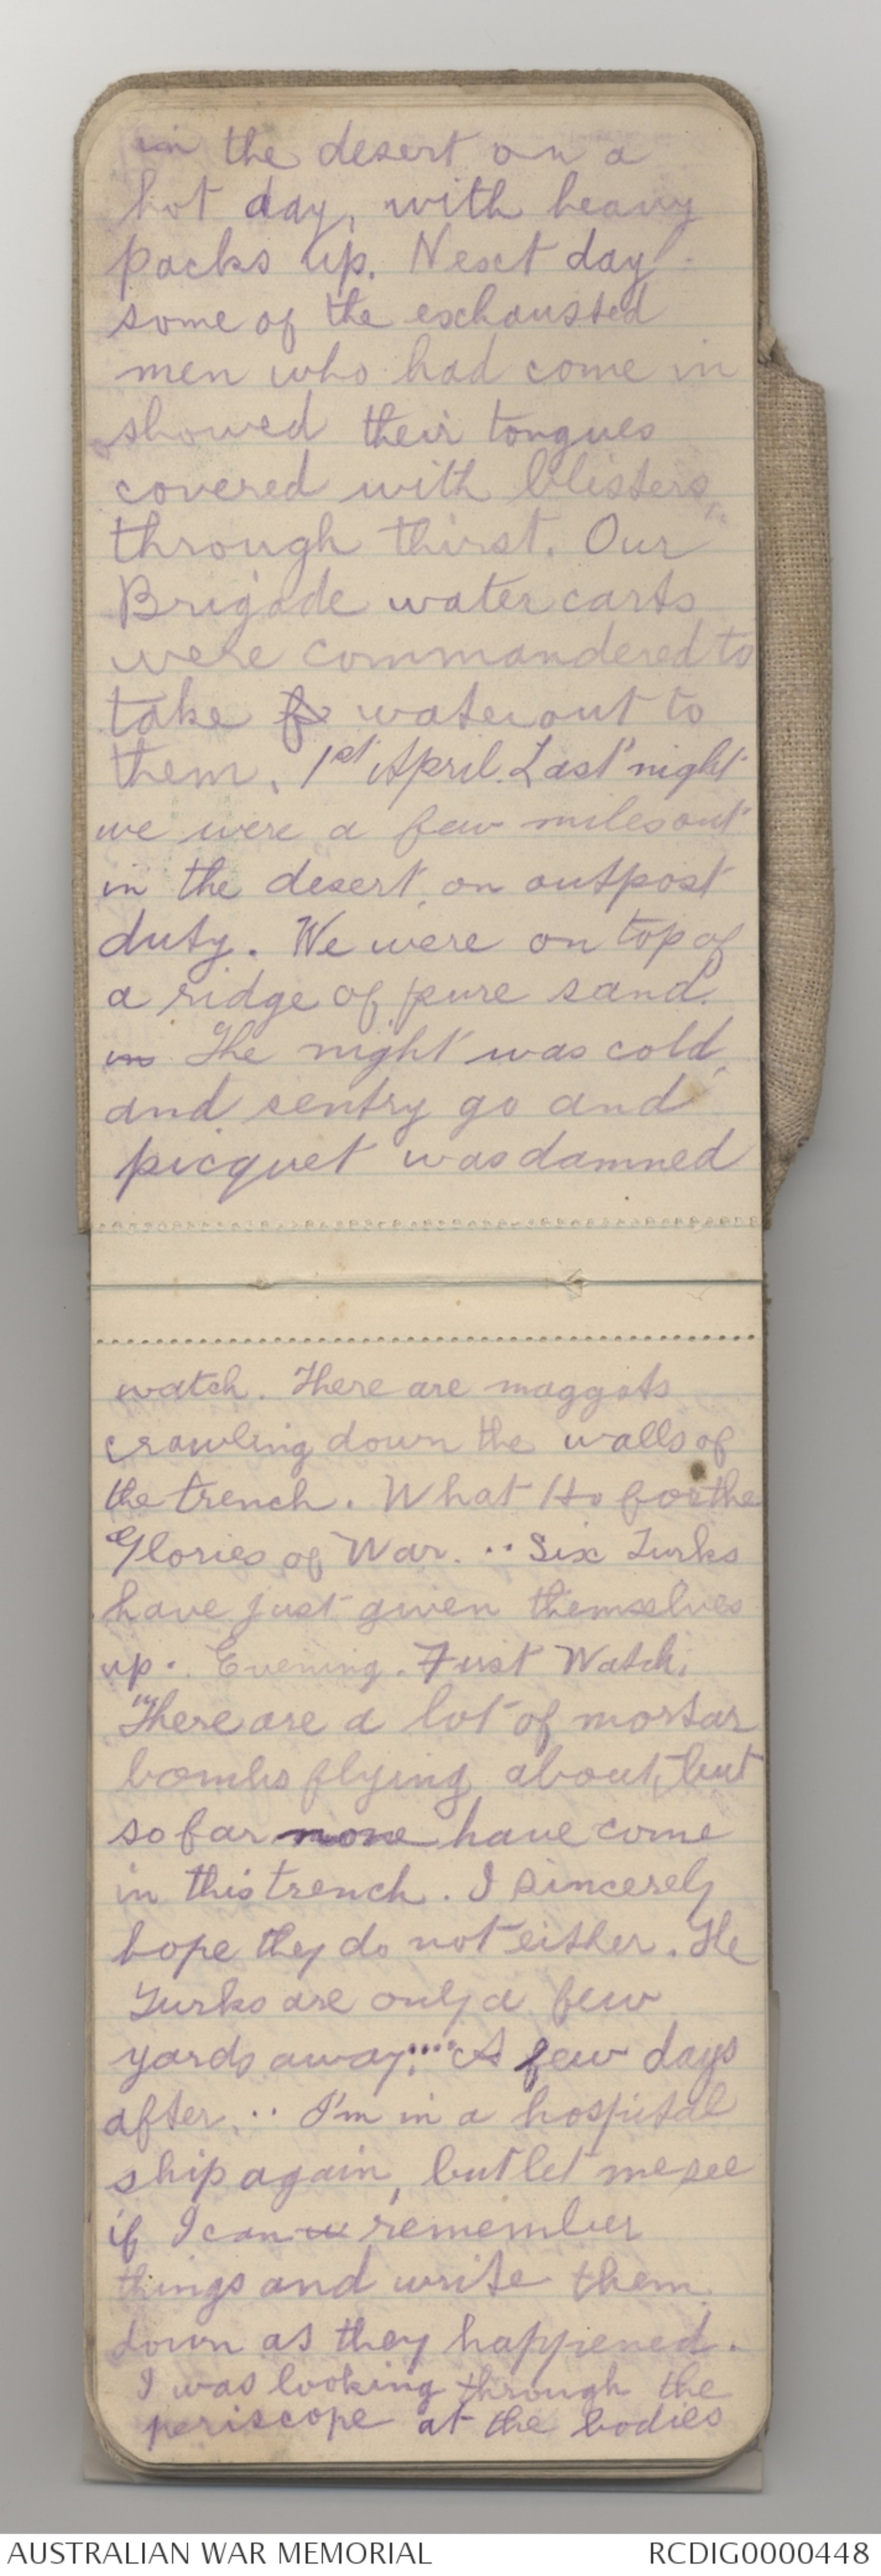 in the desert on a
hot day, with heavy
packs up. Next day
some of the exhausted
men who had come in
showed their tongues
covered with blisters,
through thirst. Our
Brigade water carts
were commandered to
take water out to
them. 1st April. Last night
we were a few miles out
in the desert, on outpost
duty. We were on top of
a ridge of pure sand.
The night was cold,
and sentry go and
picquet was damned
watch. There are maggots
crawling down the walls of
the trench. What Ho for the
Glories of War... Six Turks
have just given themselves
up. Evening. First Watch.
There are a lot of mortar
bombs flying about, but
so far none have come
in this trench. I sincerely
hope they do not either. The
Turks are only a few
yards away.... A few days
after... I'm in a hospital
ship again, but let me see
if I can remember
things and write them
down as they happened.
I was looking through the
periscope at the bodies
AUSTRALIAN WAR MEMORIAL
RCDIG0000448